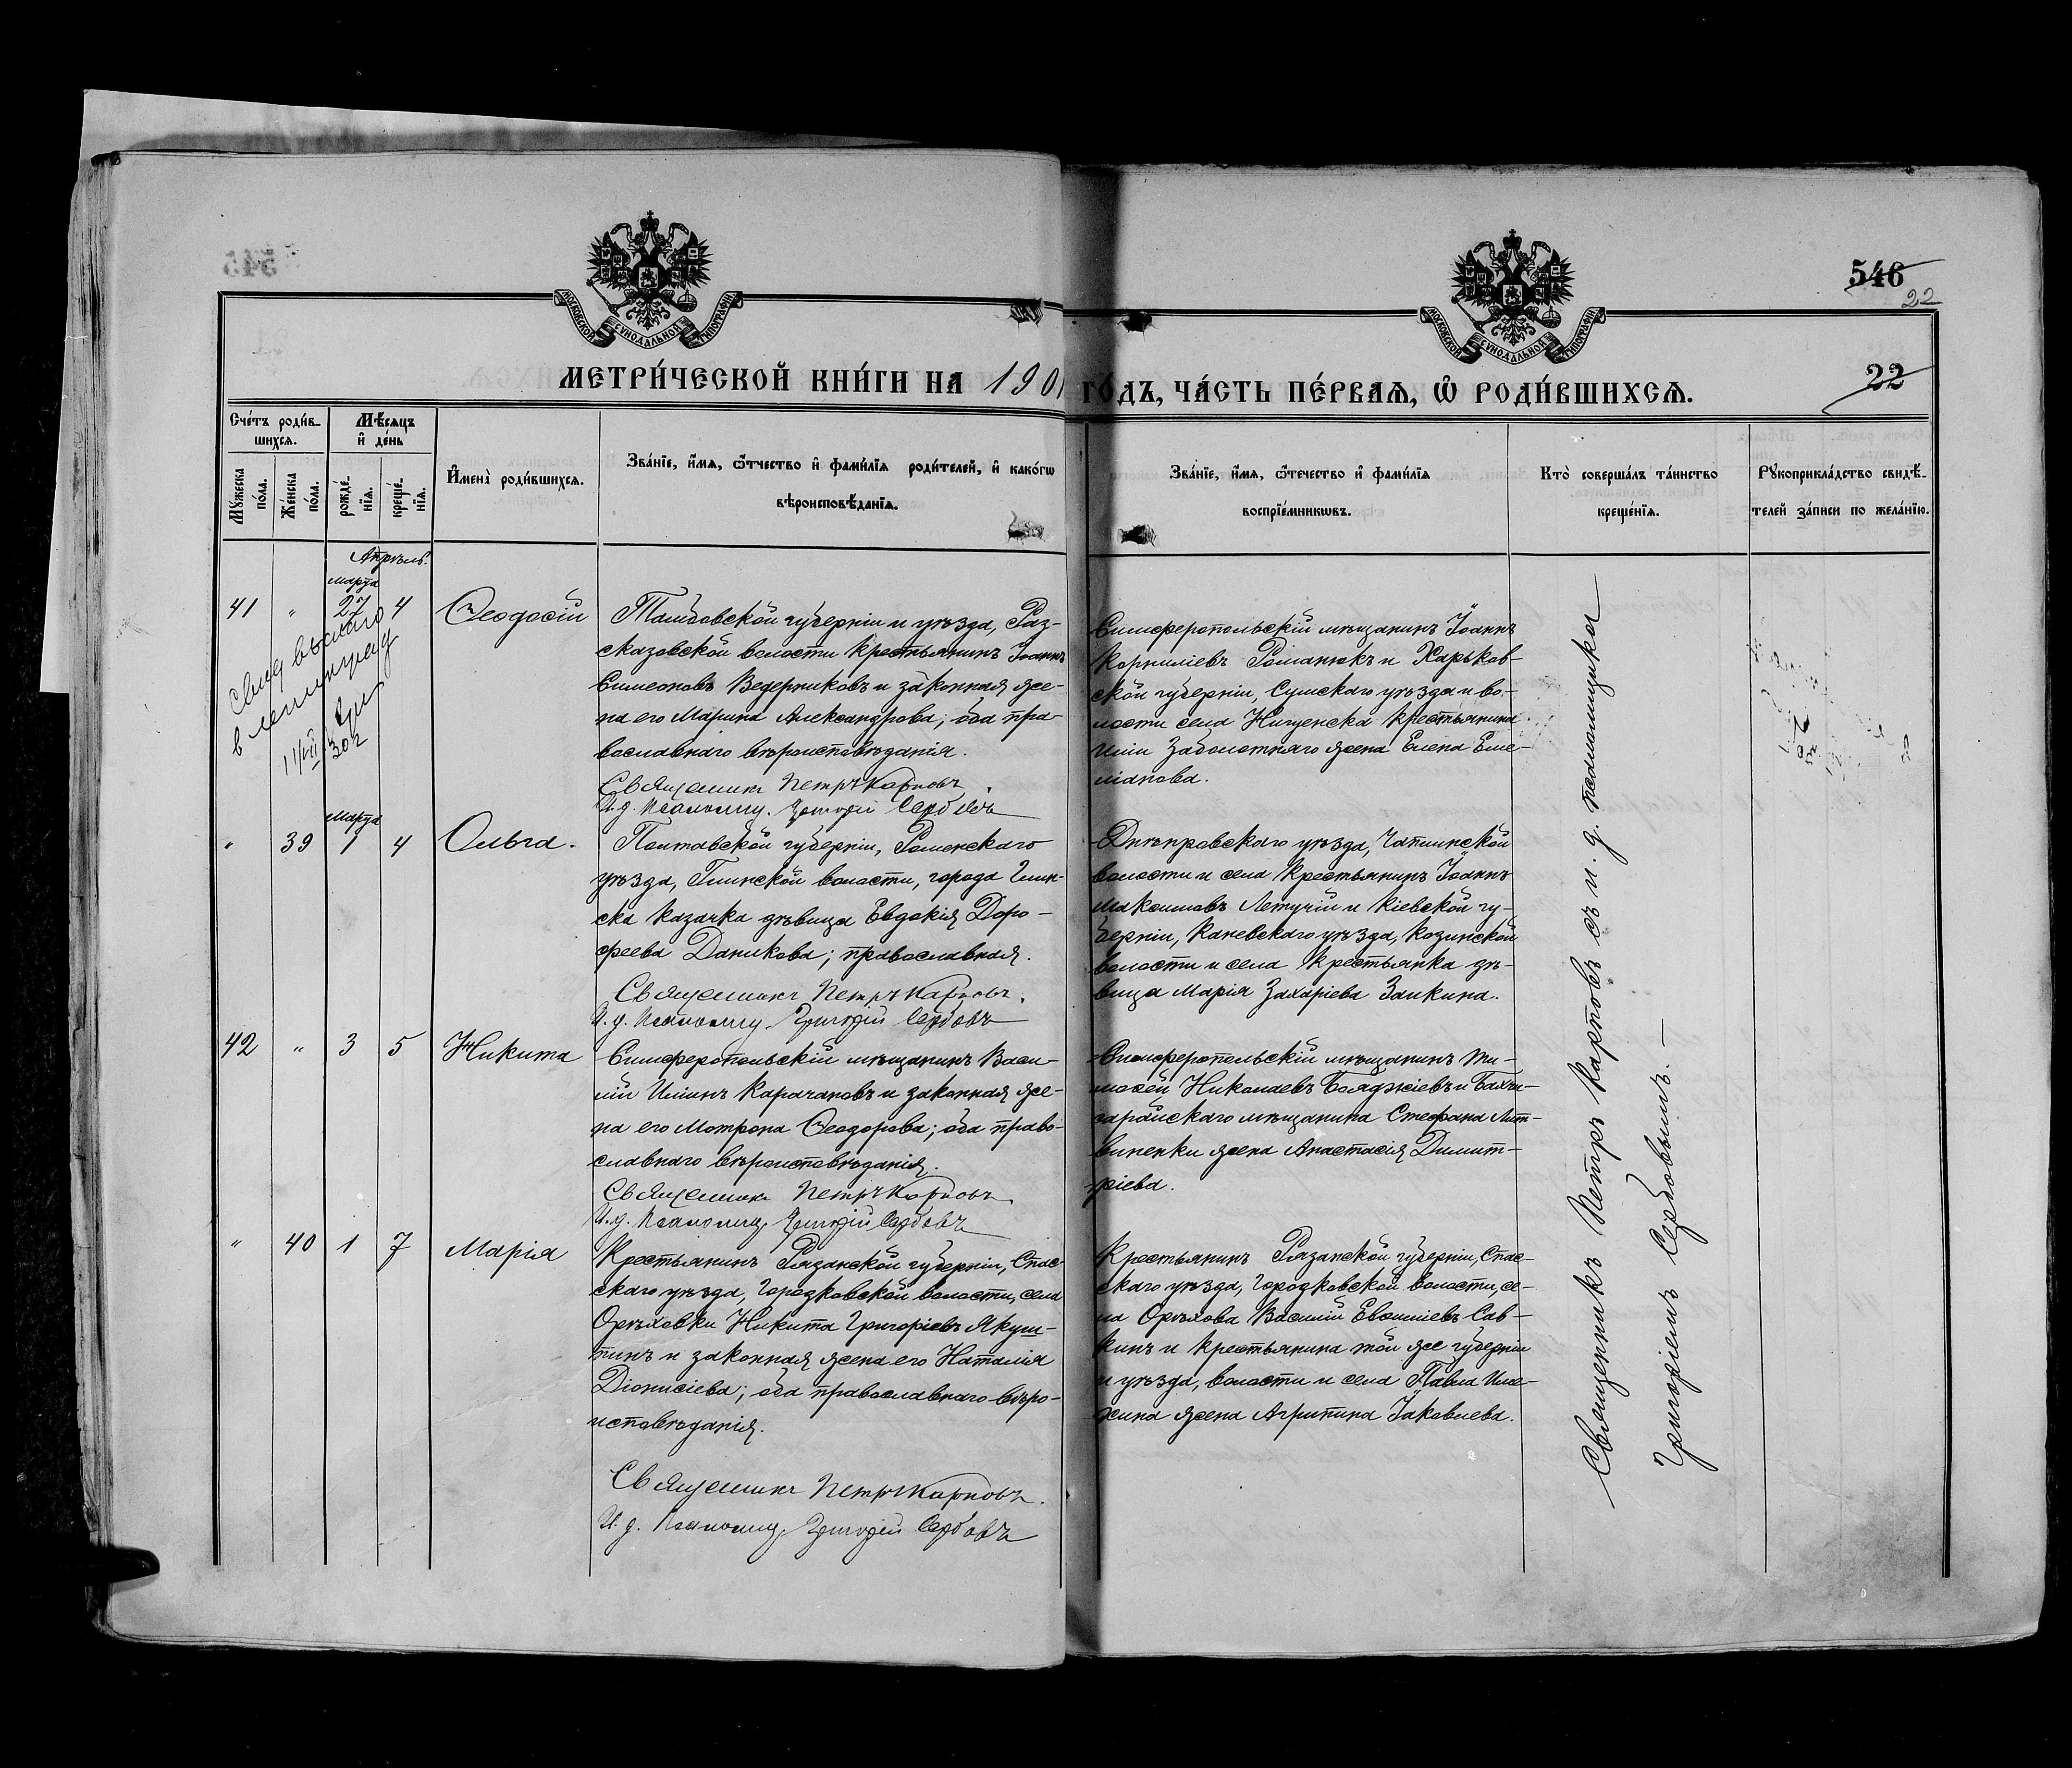 546
22
МОСКОВСКОЙ СѴНОДАЛЬНОЙ ТИПОГРАФІИ
МОСКОВСКОЙ СѴНОДАЛЬНОЙ ТИПОГРАФІИ
МЕТРИ́ЧЕСКОЙ КНИ́ГИ НА 1901
ГО́ДЪ, ЧА́СТЬ ПЕ́РВАѦ, Ѡ҆ РОДИ́ВШИХСѦ.
22
Сче́тъ роди́в-
шихсѧ.
Мѣ́сѧцъ
и҆ де́нь
Мꙋ́жеска по́ла.
Же́нска по́ла.
рожде́-
нїѧ.
креще́-
нїѧ.
И҆мена̀ роди́вшихсѧ.
Зва́нїе, и҆́мѧ, ѻ҆́тчество и҆ фами́лїѧ роди́телей, и҆ како́гѡ
вѣроисповѣ́данїѧ.
Зва́нїе, и҆́мѧ, ѻ҆́тчество и҆ фами́лїѧ
воспрїе́мникѡвъ.
Кто̀ соверша́лъ та́инство
креще́нїѧ.
Рꙋкоприкла́дство свидѣ́-
телей за́писи по жела́нїю.
Апрѣль.
Марта
41 " 27 4 Ѳеодосій
Тамбовской губерніи и уѣзда, Раз-
сказовской волости крестьянинъ Іоаннъ
Симеоновъ Ведерниковъ и законная же-
на его Марина Александрова; оба пра-
вославнаго вѣроисповѣданія.
Священникъ Петръ Карповъ.
И. д. Псаломщ. Григорій Сербовъ
Симферопольскій мѣщанинъ Іоаннъ
Корниліевъ Романюкъ и Харьков-
ской губерніи, Сумскаго уѣзда и во-
лости села Ницценска крестьянина
Иліи Заболотняго жена Елена Еме-
ліанова.
Свид выслано
в Ленинград
11/VII 30 г
Марта
" 39 1 4 Ольга.
Полтавской губерніи, Роменскаго
уѣзда, Глинской волости, города Глин-
ска казачка дѣвица Евдокія Доро-
феева Даникова; православная.
Священникъ Петръ Карповъ.
И. д. Псаломщ. Григорій Сербовъ
Днѣпровскаго уѣзда, Чаплинской
волости и села крестьянинъ Іоаннъ
Максимовъ Летучій и Кіевской гу-
берніи, Каневскаго уѣзда, Козинской
волости и села крестьянка дѣ-
вица Марія Захаріева Заикина.
42 " 3 5 Никита
Симферопольскій мѣщанинъ Васи-
лій Илiинъ Карачановъ и законная же-
на его Мотрона Ѳеодорова; оба право-
славнаго вѣроисповѣданія.
Священникъ Петръ Карповъ.
И. д. Псаломщ. Григорій Сербовъ
Симферопольскій мѣщанинъ Ти-
моѳей Николаевъ Бояджіевъ и Бахчи-
сарайскаго мѣщанина Стефана Лит-
виненки жена Анастасія Димит-
ріева.
" 40 1 7 Марія
Крестьянинъ Рязанской губерніи, Спас-
скаго уѣзда, Городковской волости, села
Орѣховки Никита Григоріевъ Якуш-
тинъ и законная жена его Наталія
Діонисіева; оба православнаго вѣро-
исповѣданія.
Священникъ Петръ Карповъ.
И. д. Псаломщ. Григорій Сербовъ
Крестьянинъ Рязанской губерніи, Спас-
скаго уѣзда, Городковской волости, се-
ла Орѣхова Василій Евсиміевъ Сав-
кинъ и крестьянина той же губерніи
и уѣзда, волости и села Павла Име-
хина жена Агрипина Іаковлева.
Священникъ Петръ Карповъ съ и. д. псаломщика
Григоріемъ Сербовымъ.—